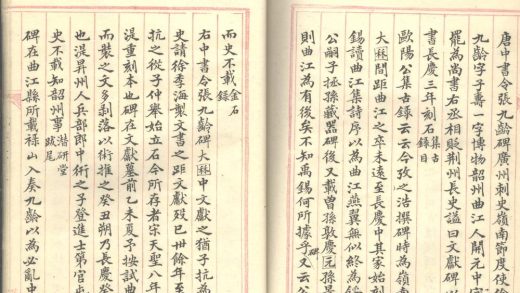 唐中書令張九齡碑廣州刺史嶺南節度使徐
九齡字子壽一字博物韶州曲江人開元中官
罷為尚書右丞相貶荆州長史謚曰文獻碑以
書長慶三年刻石 集古錄目
歐陽公集古錄云云今攷之浩撰碑時為嶺
大㦄間距曲江之卒未遠至長慶中其家始刻
錫讀曲江集詩序以為曲江燕翼無似終為
公嗣子拯孫藏器後又載曾孫敦慶元孫景
則曲江為有後矣不知禹錫何所據乎碑又云公
而史不載 金石錄
右中書令張九齡碑大㦄中文獻之猶子抗為
史請徐季海製文書之距文獻歿已卅餘年至
抗之從子仲舉始立石今所存者宋天聖八年
湜重刻本也碑在文獻墓前乙未夏予按試曲
而裝之文多剥落以術推之癸丑朔乃長慶癸
也湜昇州人兵部郎中術之子登進士第官屯
史不載知韶州事 潛研堂跋尾
碑在曲江縣所載禄山入奏九齡以為必亂中